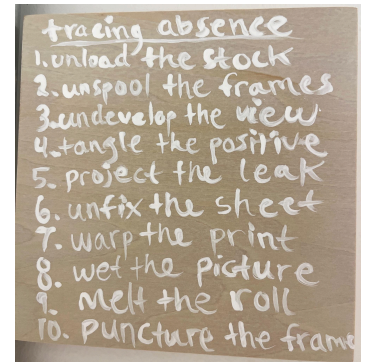 tracing absence
1. unload the stock
2. unspool the frames
3. undevelop the view
4. tangle the positive
5. project the leak
6. unfix the sheet
7. warp the print
8. wet the picture
9. melt the roll
10. puncture the frame